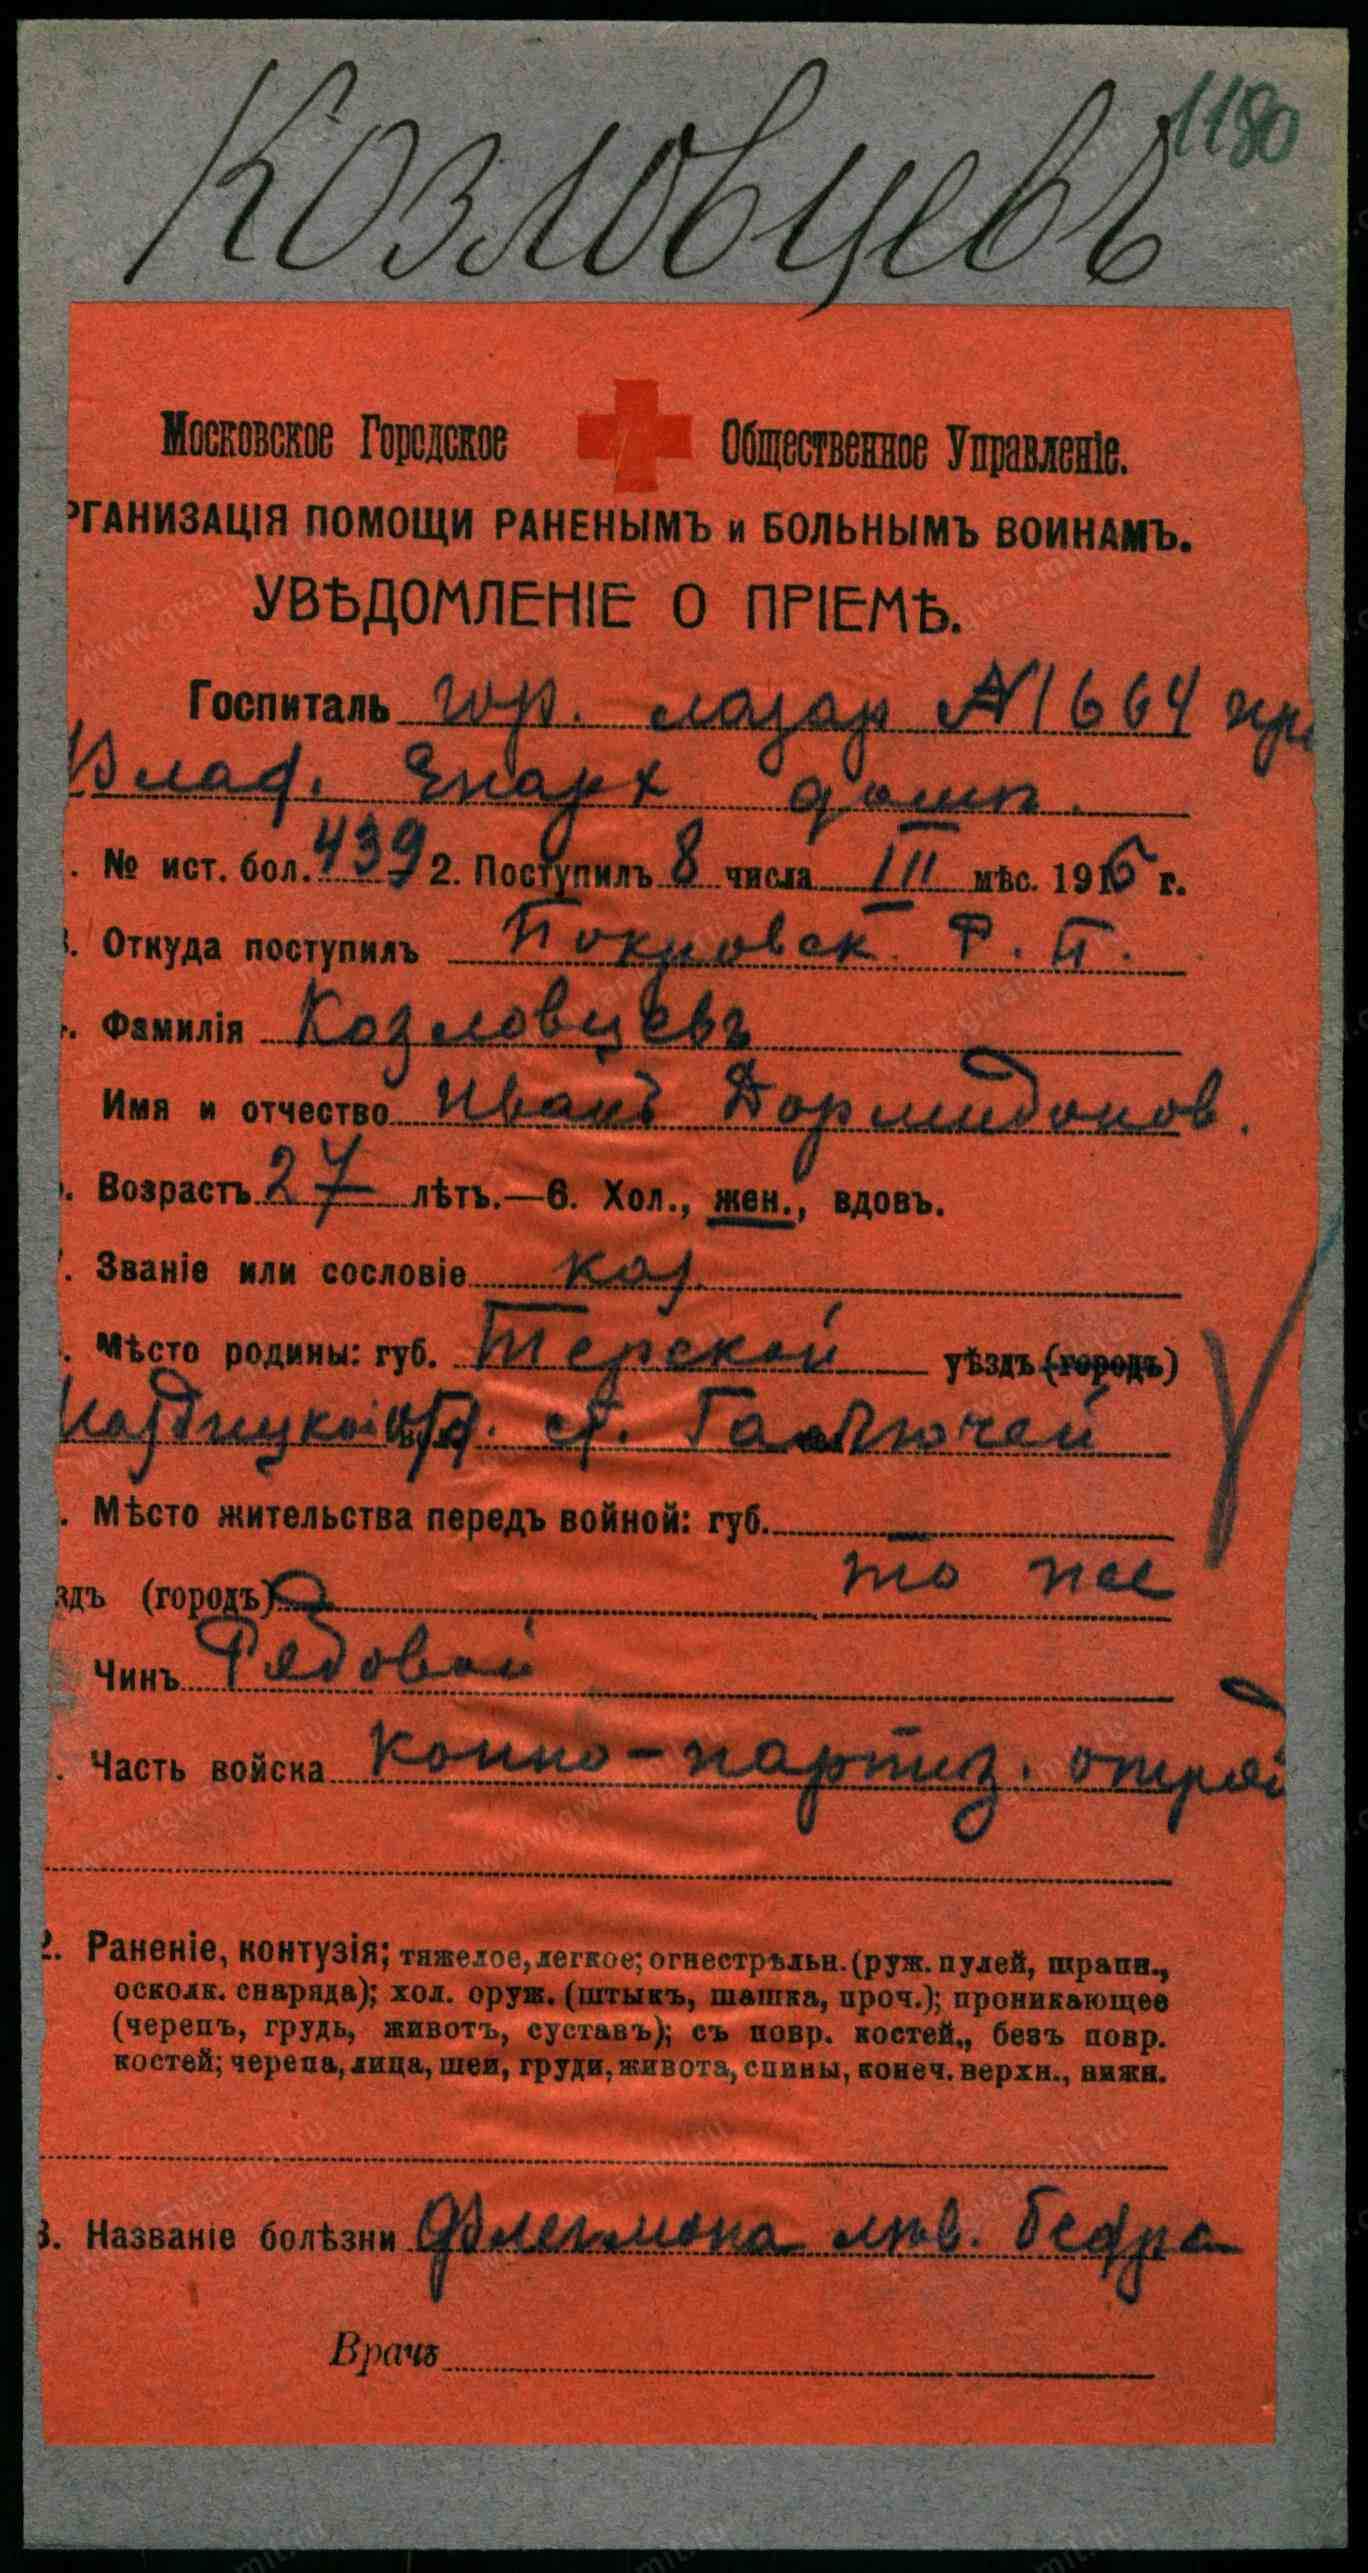 1180
Козловцевъ
Московское Городское Общественное Управленіе.
РГАНИЗАЦІЯ ПОМОЩИ РАНЕНЫМЪ и БОЛЬНЫМЪ ВОИНАМЪ.
УВѢДОМЛЕНІЕ О ПРІЕМѢ.
Госпиталь гор. лазар № 1664 при
Влад. Епарх
. № ист. бол. 439 2. Поступилъ 8 числа III мѣс. 1916 г.
3. Откуда поступилъ Покровск. Р. П.
4. Фамилія Козловцевъ
Имя и отчество Иванъ Дормидонов.
5. Возрастъ 27 лѣтъ.—6. Хол., жен., вдовъ.
7. Званіе или сословіе каз.
. Мѣсто родины: губ. Терской уѣздъ (городъ)
ст. Галюгаей
. Мѣсто жительства передъ войной: губ.
здъ (городъ) то же
Чинъ Рядовой
. Часть войска конно-партиз. отряд
2. Раненіе, контузія; тяжелое, легкое; огнестрѣльн. (руж. пулей, шрапн.,
осколк. снаряда); хол. оруж. (штыкъ, шашка, проч.); проникающее
(черепъ, грудь, животъ, суставъ); съ повр. костей,, безъ повр.
костей; черепа, лица, шеи, груди, живота, спины, конеч. верхн., нижн.
3. Названіе болѣзни Флегмона лѣв. бедра
Врачъ